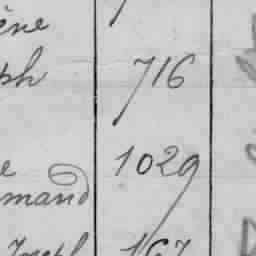 ène
ph 716
e 1029
mand
Joseph 167